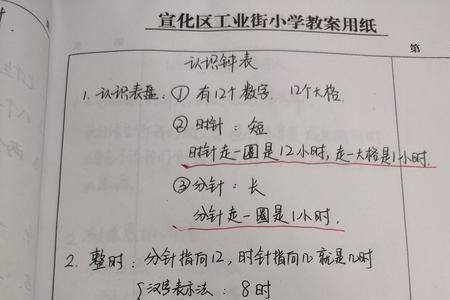 宣化区工业街小学教案用纸
第
认识钟表
1. 认识表盘: ① 有12个数字. 12个大格.
② 时针: 短
时针走一圈是12小时, 走一大格是1小时.
③ 分针: 长
分针走一圈是1小时.
2. 整时: 分针指向12, 时针指向几就是几时
{汉字表示法: 8时